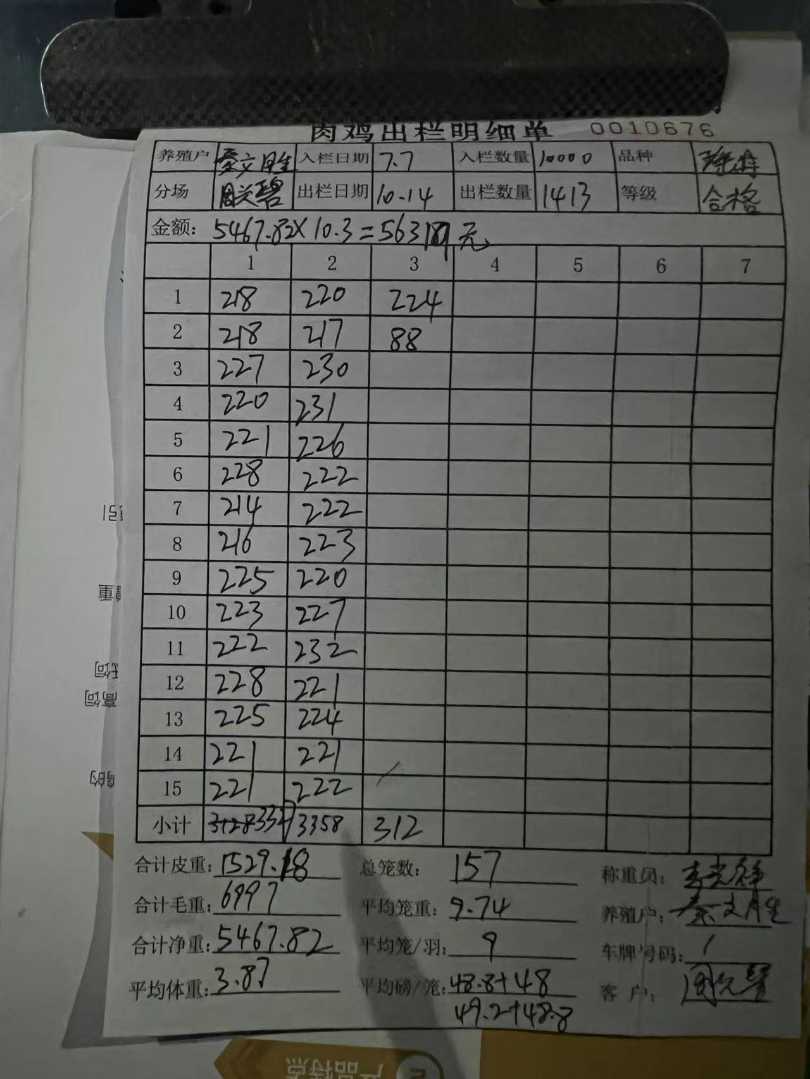 肉鸡出栏明细单 0010676
养殖户 秦文胜 入栏日期 7.7 入栏数量 10000 品种
分场 出栏日期 10.14 出栏数量 1413 等级 合格
金额: 5467.82×10.3=56319元
1 2 3 4 5 6 7
1 218 220 224
2 218 217 88
3 227 230
4 220 231
5 221 226
6 228 222
7 214 222
8 216 223
9 225 220
10 223 227
11 222 232
12 228 221
13 225 224
14 221 221
15 221 222
小计 3128 3327 3358 312
合计皮重: 1529.18 总笼数: 157 称重员:
合计毛重: 6997 平均笼重: 9.74 养殖户: 秦文胜
合计净重: 5467.82 平均笼/羽: 9 车牌号码: /
平均体重: 3.87 平均磅/笼: 48.8+48 客户:
49.2+48.8
产品特点